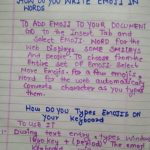 HOW DO YOU WRITE EMOJI IN
WORDS
TO ADD EMOJI TO YOUR DOCUMENT
GO TO the Insert Tab and
Select EMOJI WORD FOR
Web Displays Some SMILEYS
And people. To choose from the
Entire Set OF EMOJI Select
More Emojis for a few emojis,
Word for the web automatically
Converts character as you type
them.
HOW DO YOU TYPES EMOJIS ON
YOUR KEYBOARD
TO Use it
1. During text entry, types Windows
logo key + (period). The emoji